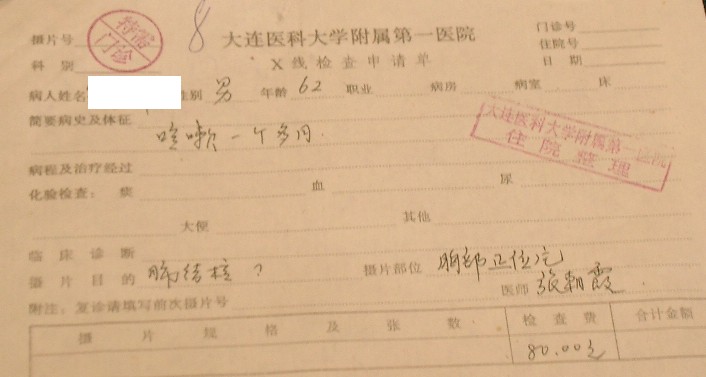 特需
门诊
8
摄片号 大连医科大学附属第一医院 门诊号
住院号
科别 X线检查申请单 日期
病人姓名 性别 男 年龄 62 职业 病房 病室 床
简要病史及体征
咳嗽一个多月
大连医科大学附属第一医院
住院整理
病程及治疗经过
化验检查： 痰 血 尿
大便 其他
临床诊断
摄片目的 肺结核? 摄片部位 胸部正位片
医师 张朝霞
附注：复诊请填写前次摄片号
摄片规格及张数 检查费 合计金额
80.00元